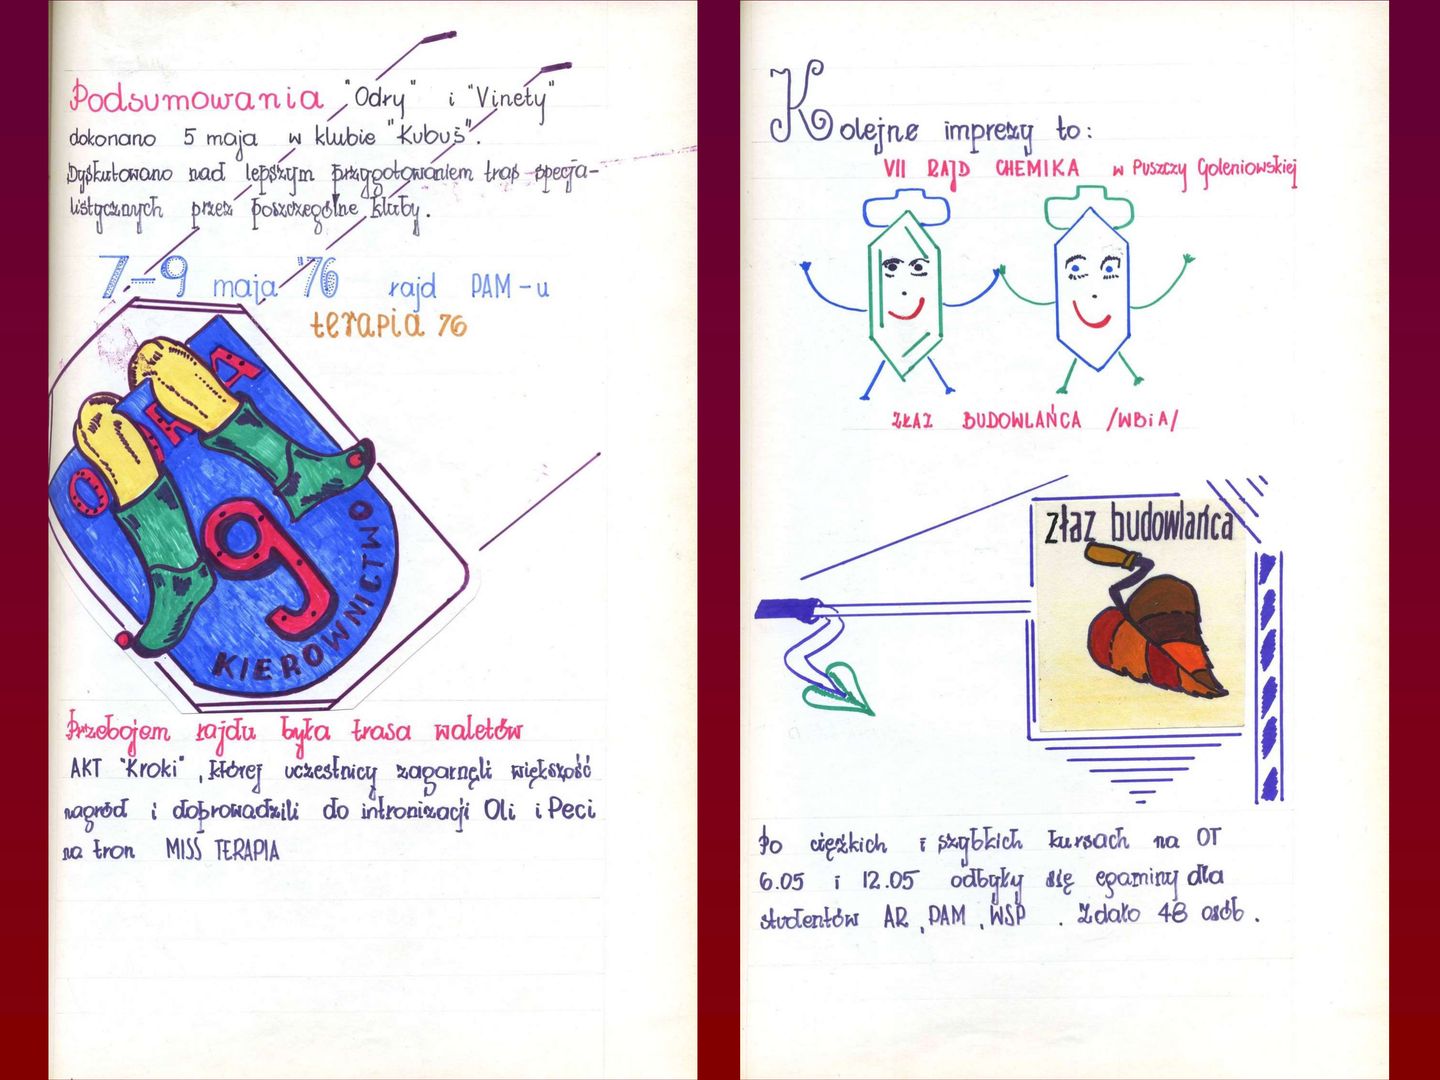 Podsumowania "Odry" i "Vinety"
dokonano 5 maja w klubie "Kubuś".
Dyskutowano nad lepszym przygotowaniem tras specja-
listycznych przez poszczególne kluby.
7-9 maja '76 rajd PAM-u
terapia 76
ODRA
9
KIEROWNICTWO
Przebojem rajdu była trasa waletów
AKT "Kroki", której uczestnicy zagarnęli większość
nagród i doprowadzili do intronizacji Oli i Peci
na tron MISS TERAPIA
Kolejne imprezy to:
VII RAJD CHEMIKA w Puszczy Goleniowskiej
ZŁAZ BUDOWLAŃCA /WBiA/
złaz budowlańca
Po ciężkich i szybkich kursach na OT
6.05 i 12.05 odbyły się egaminy dla
studentów AR, PAM, WSP. Zdało 48 osób.